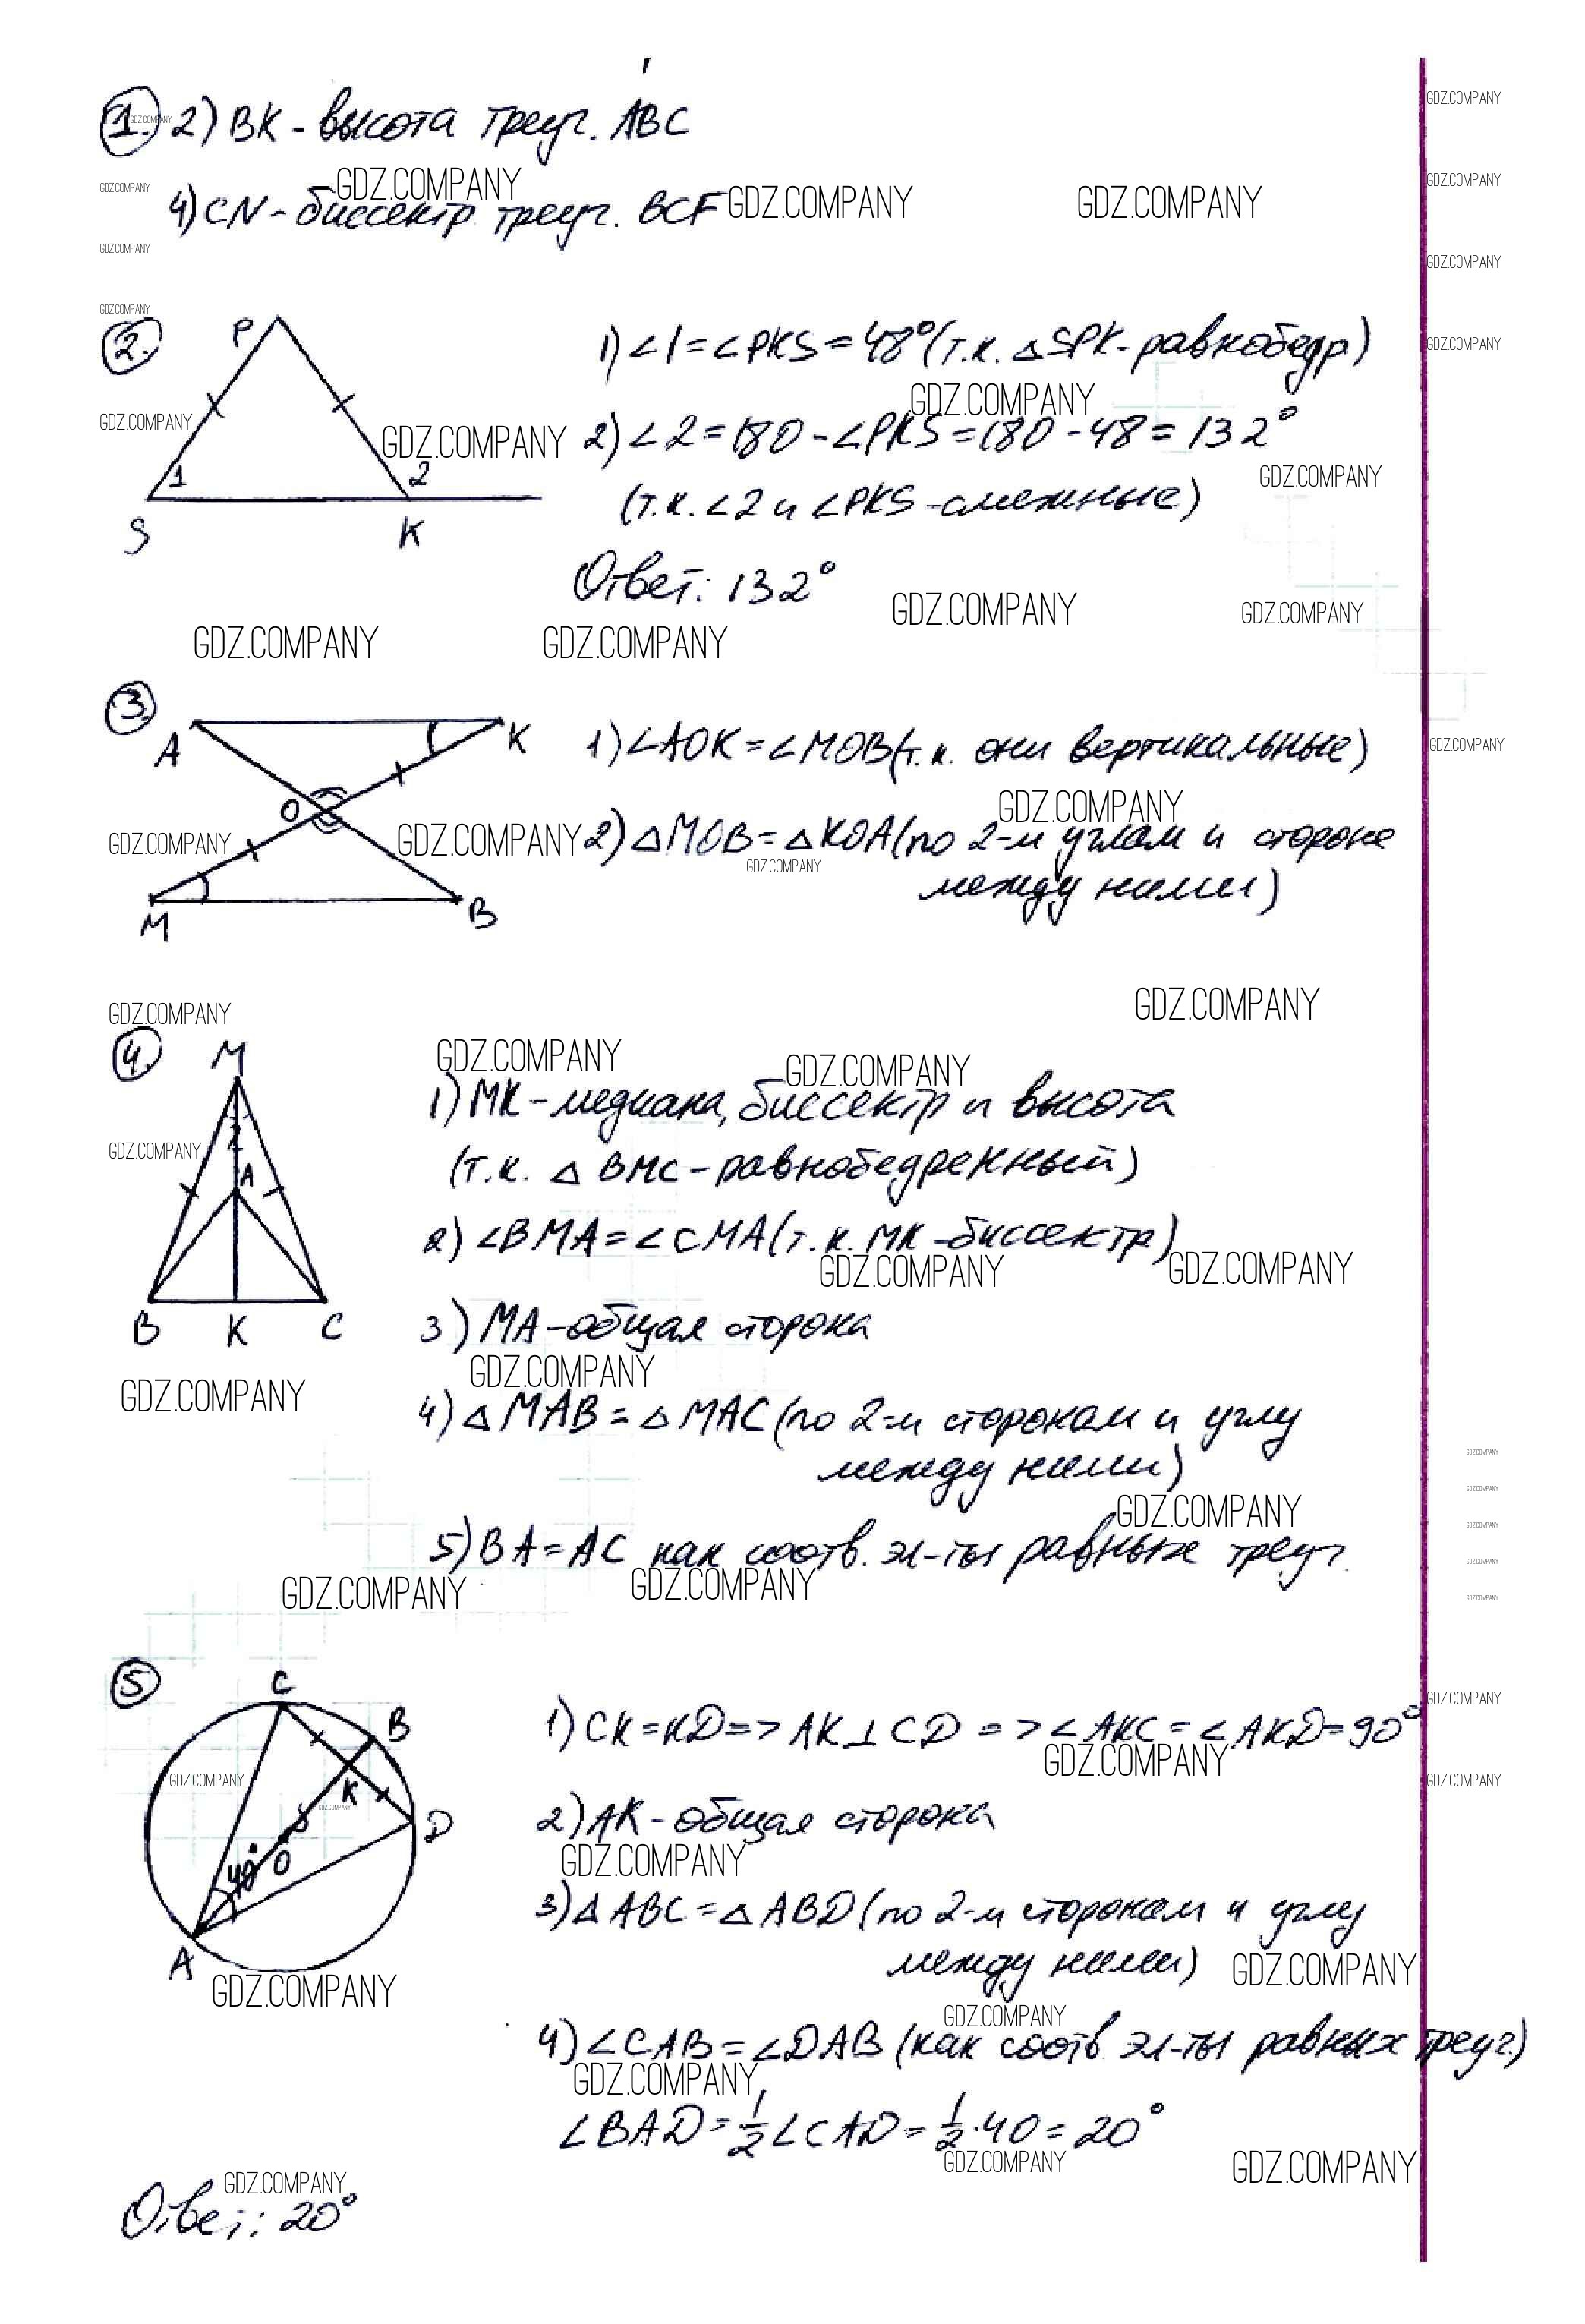 1. 2) ВК - высота треуг. АВС
4) CN - биссектр. треуг. BCF
2. 1) ∠1 = ∠PKS = 48° (т.к. △SPK - равнобедр)
P
2) ∠2 = 180 - ∠PKS = 180 - 48 = 132°
1 2
(т.к. ∠2 и ∠PKS - смежные)
S K
Ответ: 132°
3. 1) ∠AOK = ∠MOB (т.к. они вертикальные)
A K
O
2) △MOB = △KOA (по 2-м углам и стороне
между ними)
M B
4. M
1) MK - медиана, биссектр и высота
(т.к. △ BMC - равнобедренный)
A
2) ∠BMA = ∠CMA (т.к. MK - биссектр)
B K C
3) MA - общая сторона
4) △MAB = △MAC (по 2-м сторонам и углу
между ними)
5) BA = AC как соотв. эл-ты равных треуг.
5 C
B
1) CK = KD => AK⊥CD => ∠AKC = ∠AKD = 90°
K
2) AK - общая сторона
D
O
40°
3) △ABC = △ABD (по 2-м сторонам и углу
между ними)
A
4) ∠CAB = ∠DAB (как соотв. эл-ты равных треуг.)
∠BAD = 1/2 ∠CAD = 1/2 · 40 = 20°
Ответ: 20°
GDZ.COMPANY